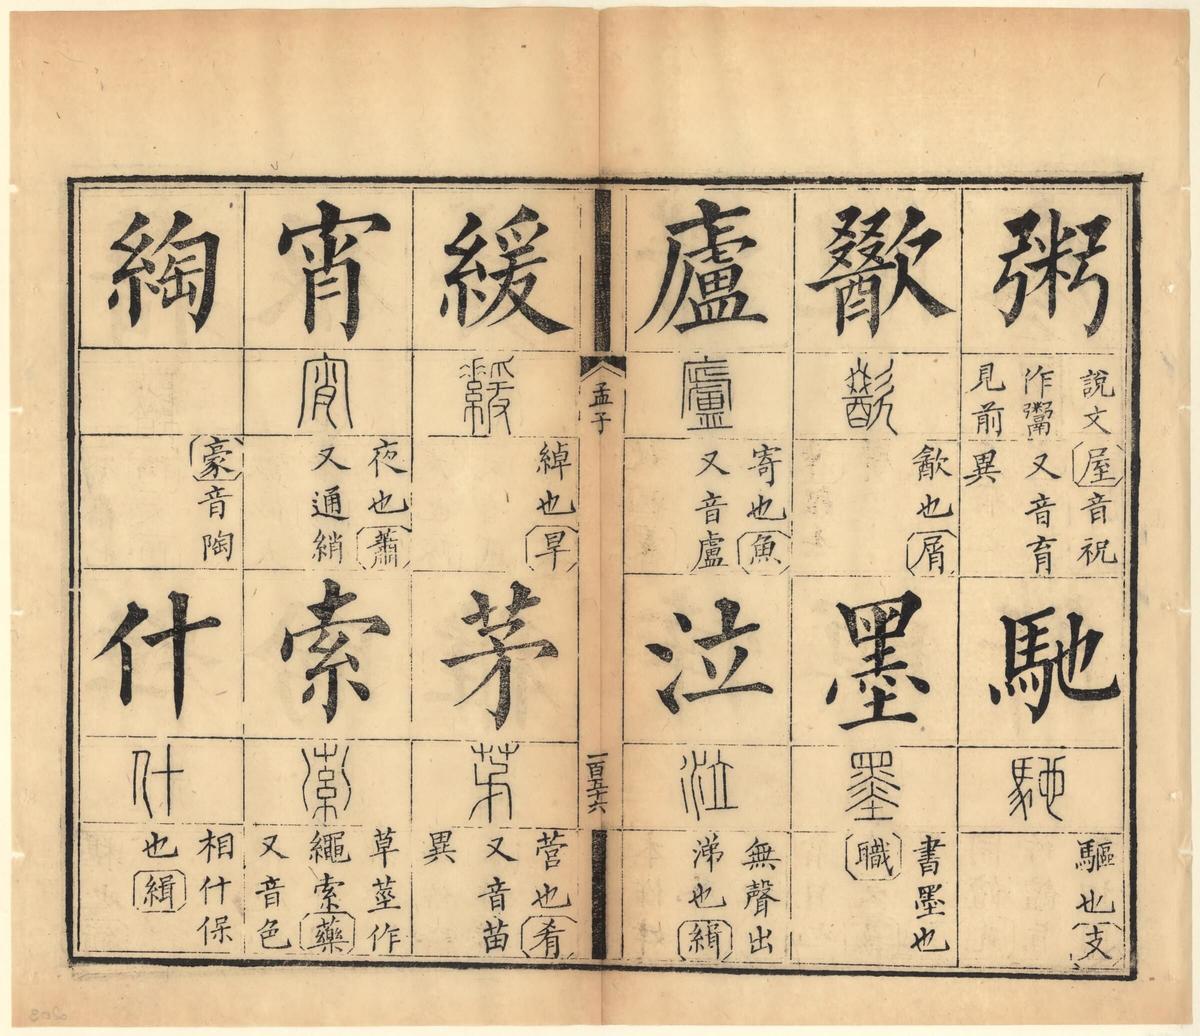 粥
説文
作鬻
見前
屋音祝
又音育
異
馳
馳
驅也支
歠
歠
歠也屑
墨
墨
書墨也
職
廬
廬
寄也魚
又音盧
泣
泣
無聲出
涕也緝
孟子
一百五十六
緩
緩
綽也旱
茅
茅
菅也肴
又音苗
異
宵
宵
夜也蕭
又通綃
索
索
草莖作
繩索藥
又音色
綯
豪音陶
什
什
相什保
也緝